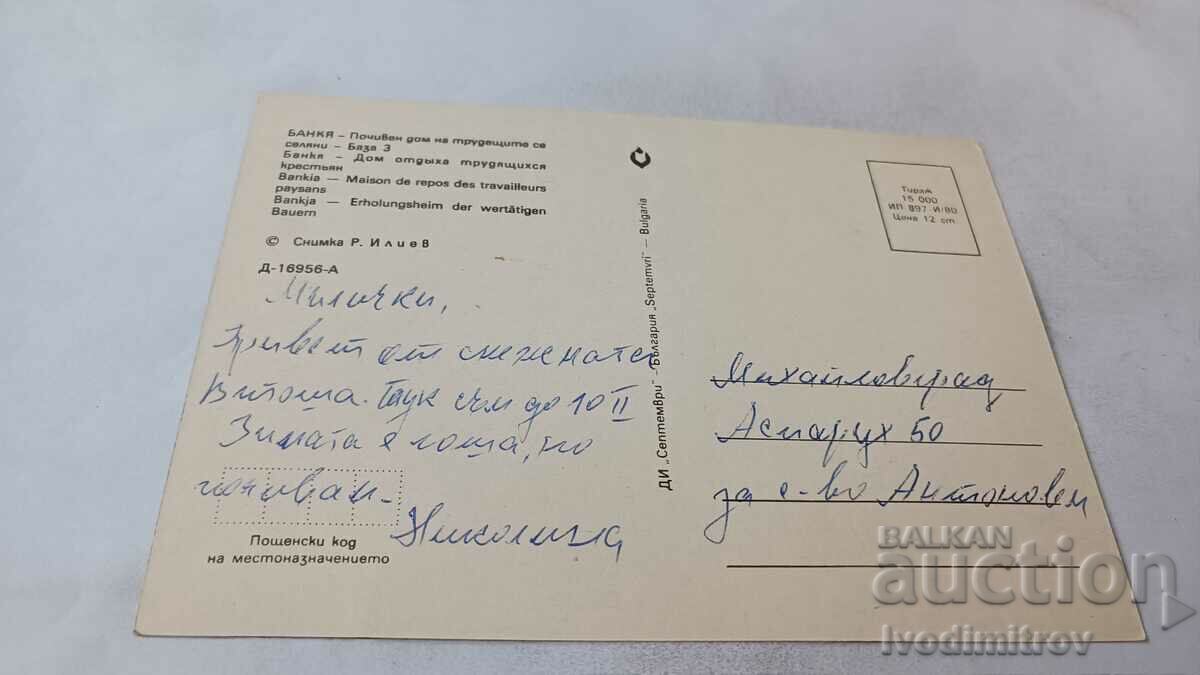 БАНКЯ – Почивен дом на трудещите се
селяни – База 3
Банкя – Дом отдыха трудящихся
крестьян
Bankia — Maison de repos des travailleurs
paysans
Bankja — Erholungsheim der wertätigen
Bauern
© Снимка Р. Илиев
Д-16956-А
Милички,
Привет от снежната
Витоша. Тук съм до 10 II
Зимата е лоша, но
почивам.
Николина
Пощенски код
на местоназначението
ДИ „Септември" — България „Septemvri" — Bulgaria
Тираж
15 000
ИП 897-И/80
Цена 12 ст
Михайловград
Аспарух 50
за с-во Антонови
BALKAN
auction
Ivodimitrov